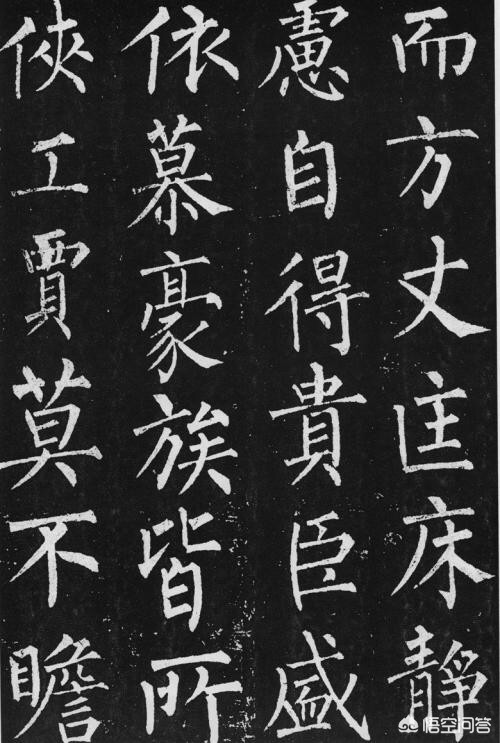 而方丈匡床静
慮自得貴臣盛
依慕豪族皆所
俠工賈莫不瞻
悟空问答